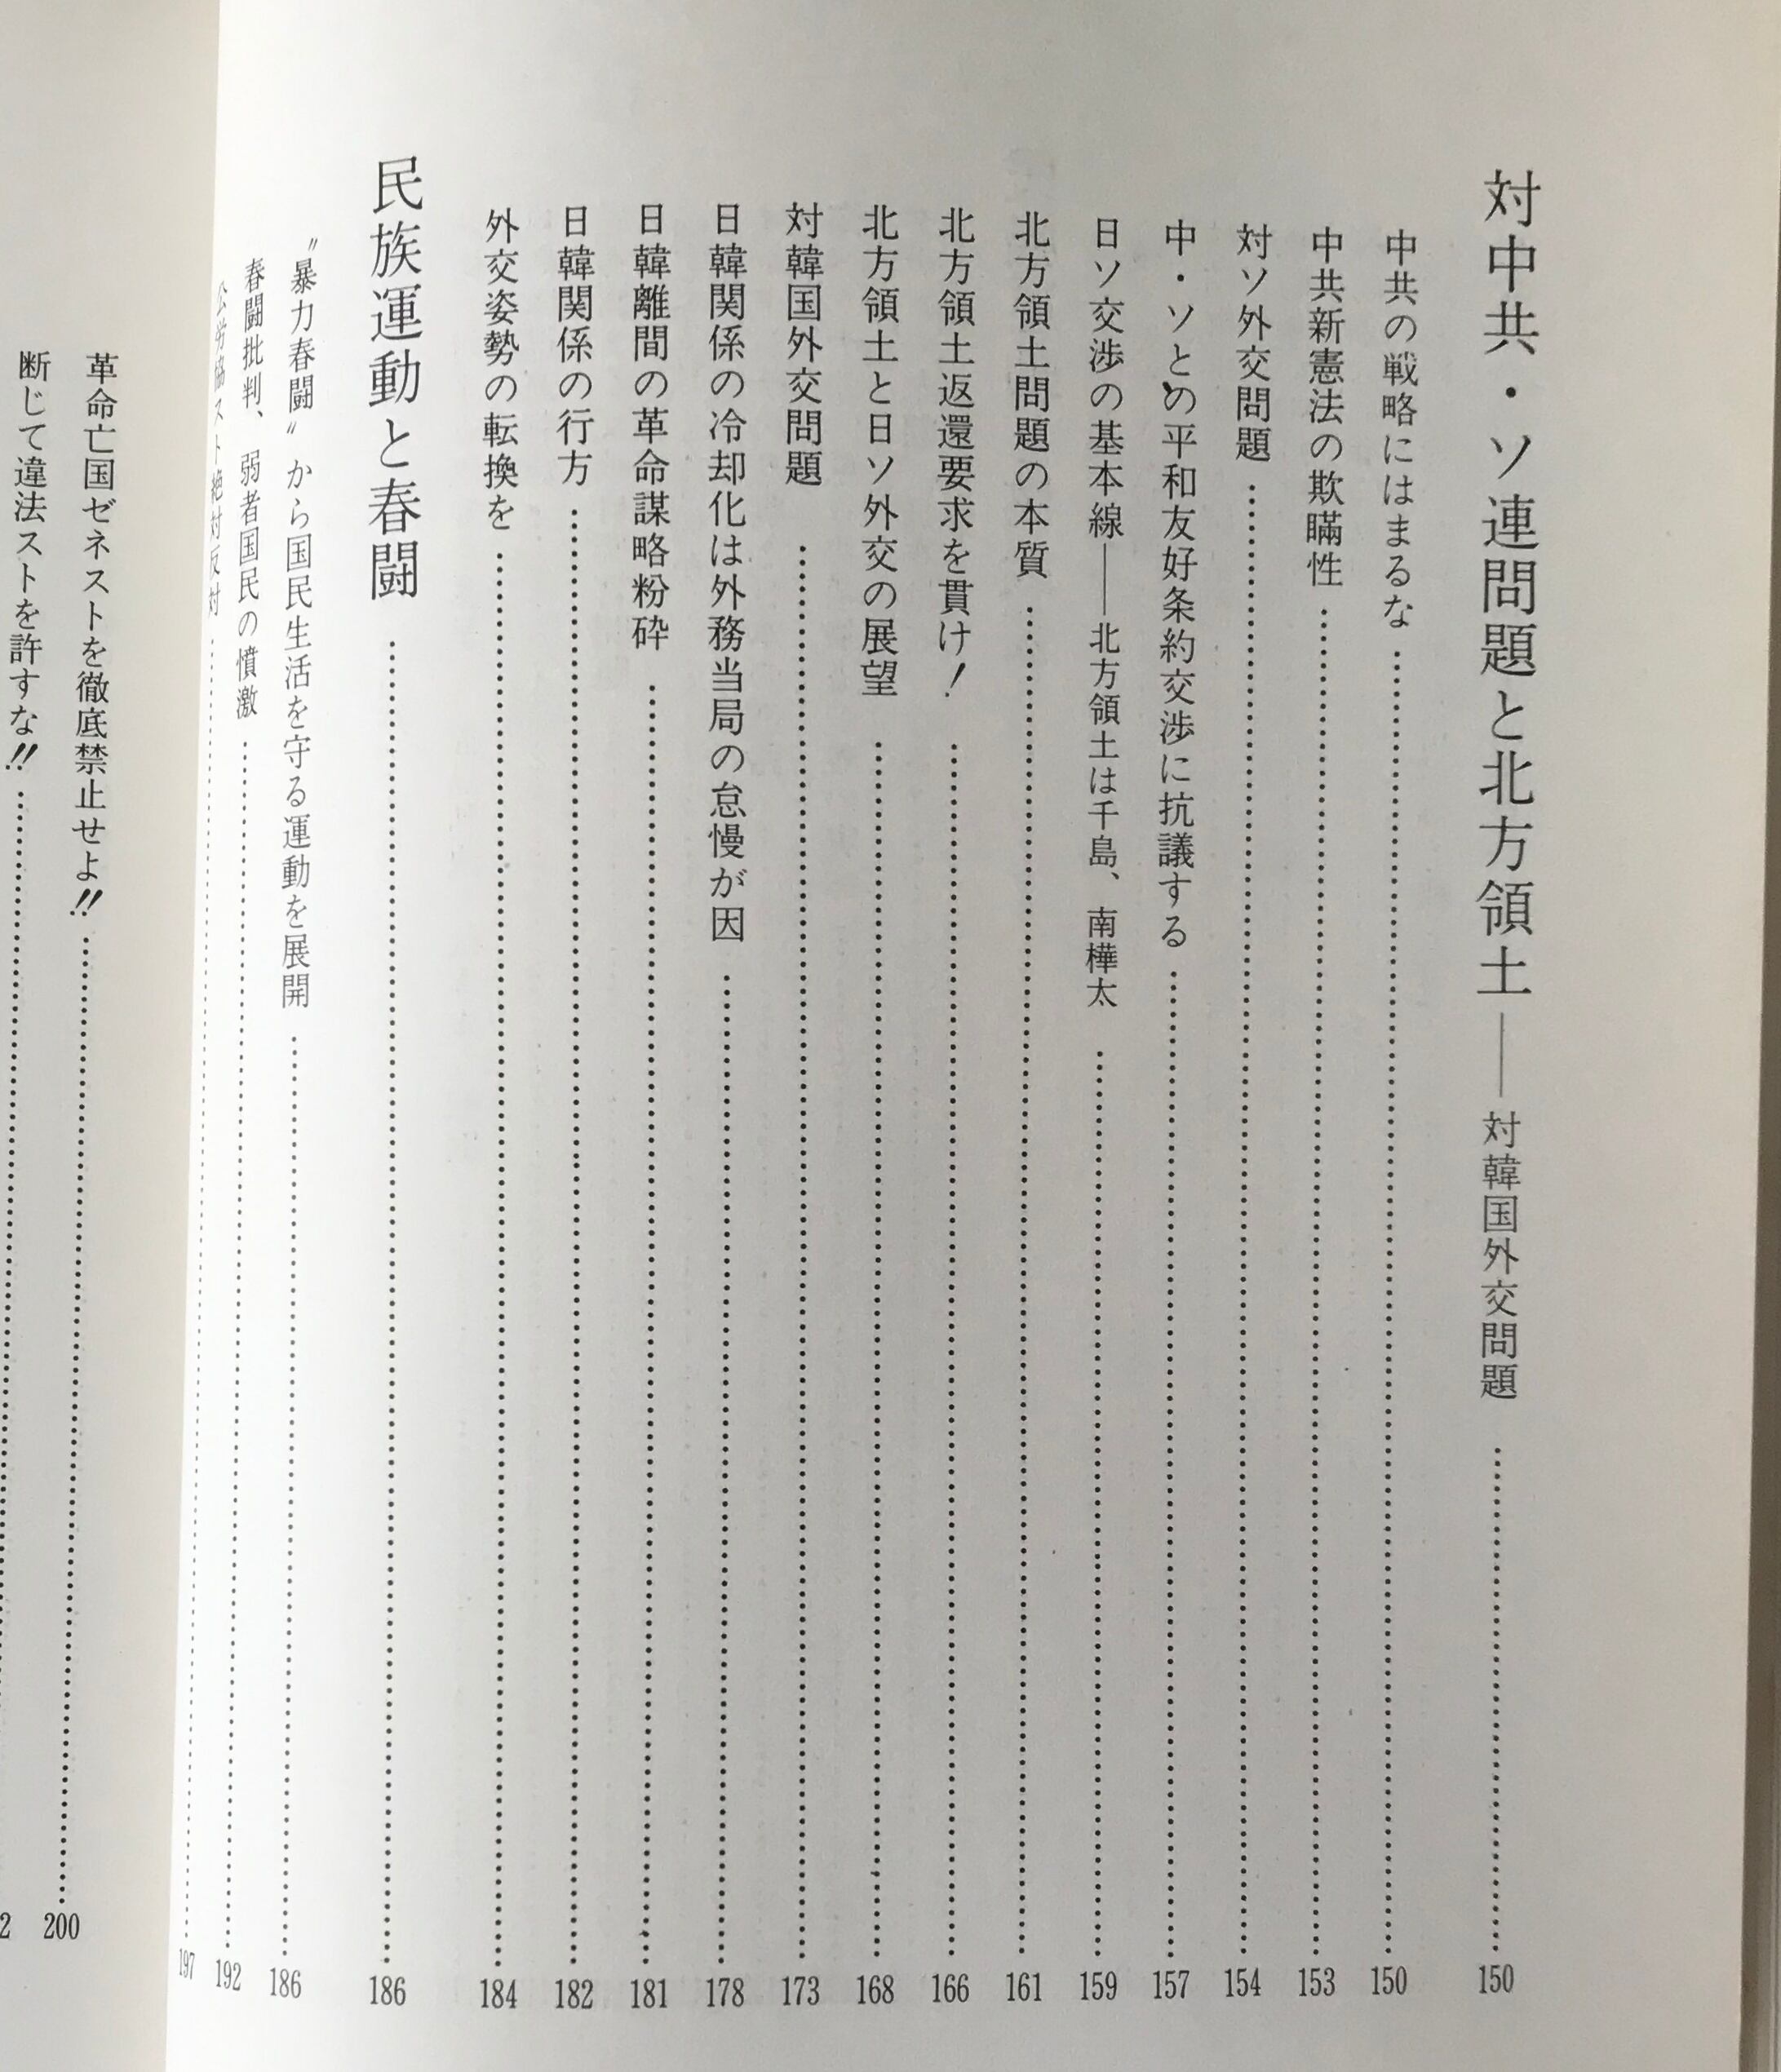 対中共・ソ連問題と北方領土――対韓国外交問題……150
中共の戦略にはまるな……150
中共新憲法の欺瞞性……153
対ソ外交問題……154
中・ソとの平和友好条約交渉に抗議する……157
日ソ交渉の基本線――北方領土は千島、南樺太……159
北方領土問題の本質……161
北方領土返還要求を貫け！……166
北方領土と日ソ外交の展望……168
対韓国外交問題……173
日韓関係の冷却化は外務当局の怠慢が因……178
日韓離間の革命謀略粉砕……181
日韓関係の行方……182
外交姿勢の転換を……184
民族運動と春闘……186
〝暴力春闘〟から国民生活を守る運動を展開……186
春闘批判、弱者国民の憤激……192
公労協スト絶対反対……197
革命亡国ゼネストを徹底禁止せよ!!……200
断じて違法ストを許すな!!……2